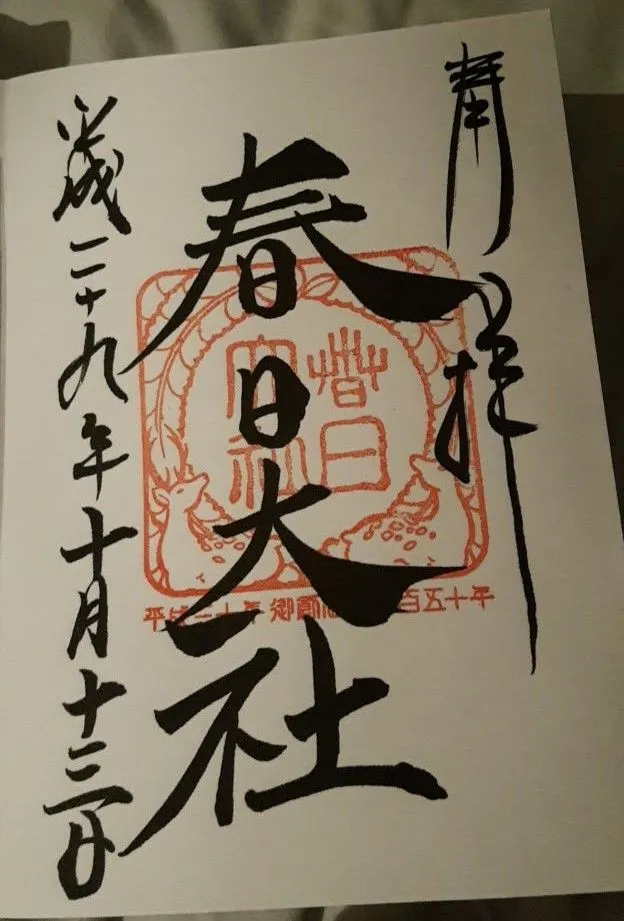 奉拝
春日大社
平成二十九年十月十三日
春日
大社
平成三十年 御創 百五十年